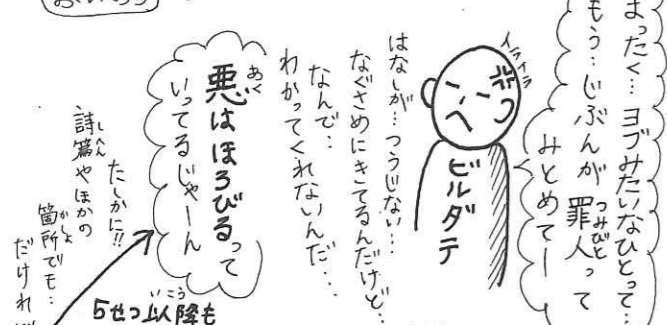 まったく…ヨブみたいなひとって…
もう…じぶんが罪人って
つみびと
みとめてー
イライラ
ビルダテ
はなしが…つうじない…
なぐさめにきてるんだけど…
なんで…
わかってくれないんだ…
あく
悪はほろびるって
いってるじゃーん
たしかに!!
しへん
詩篇やほかの
かしょ
箇所でも…
だけれ
いこう
5せつ以降も